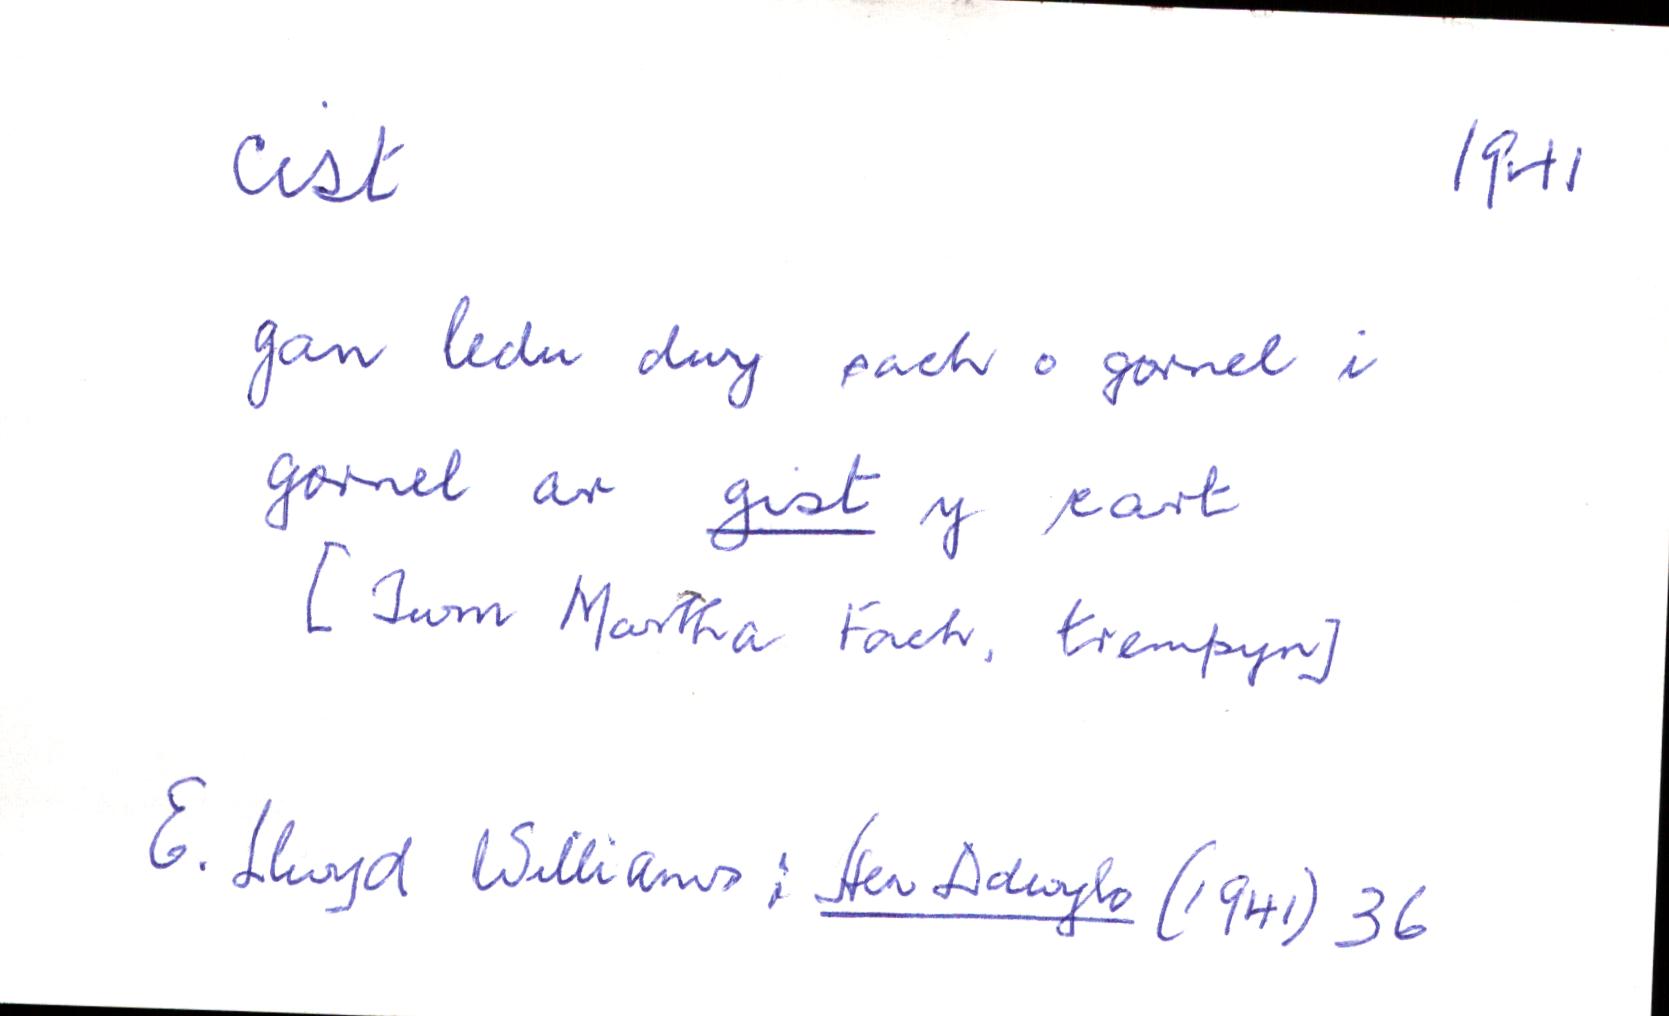 cist 1941
gan ledu dwy sach o gornel i
gornel ar gist y cart
[Twm Martha Fach, trempyn]
E. Llwyd Williams: Hen Ddwylo (1941) 36